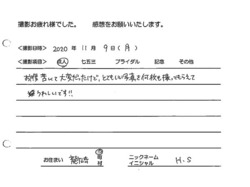 撮影お疲れ様でした。 感想をお願いいたします。
<撮影日時> 2020 年 11 月 9 日 (月)
<撮影項目> 成人 七五三 ブライダル 記念 その他
お作
大変だったけど、とても
写真を何枚も撮ってもらえて
嬉しいです!!
お住まい 市 ニックネーム イニシャル H.S